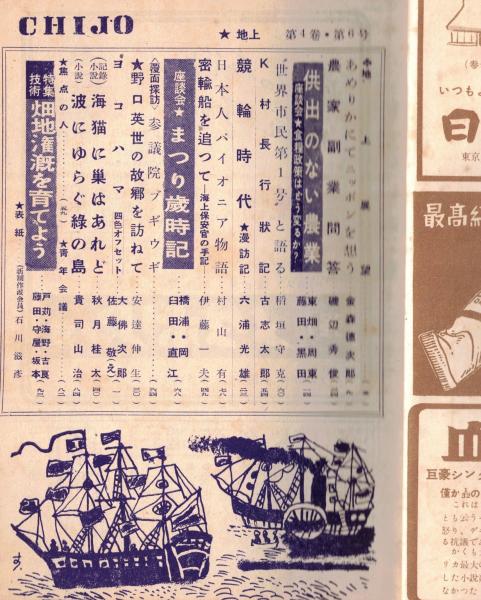 CHIJO
★ 地上 第4巻・第6号
★地上展望
あめりかにてニッポンを想う 金森徳次郎
農家副業問答 磯辺秀俊
供出のない農業
座談会★食糧政策はどう変るか?
東畑・周東
藤田・黒田
"世界市民第1号"と語る 稲垣守克
K村長行状記 古志太郎
競輪時代 ★漫訪記 六浦光雄
日本人パイオニア物語 村山有
密輸船を追って―海上保安官の手記 伊藤一夫
座談会★ まつり歳時記
橋浦・岡
臼田・直江
漫画探訪 参議院ブギウギ
★野口英世の故郷を訪ねて 安達伸生
ヨコハマ 四色オフセット
大佛次郎
佐藤敬(え)
(記録小説) 海猫に巣はあれど 秋月桂太
(小説) 波にゆらぐ緑の島 貴司山治
★焦点の人 ★青年会議
特集技術 畑地潅漑を育てよう
戸苅・海野・古良
藤田・守屋・坂本
★表紙 (新制作派会員) 石川滋彦
いつも
東京
最高級
巨豪シン
僅かの
これは
とも云う
怒り、デ
る抗議で
かくも
リカ最大
した小説
なかつた